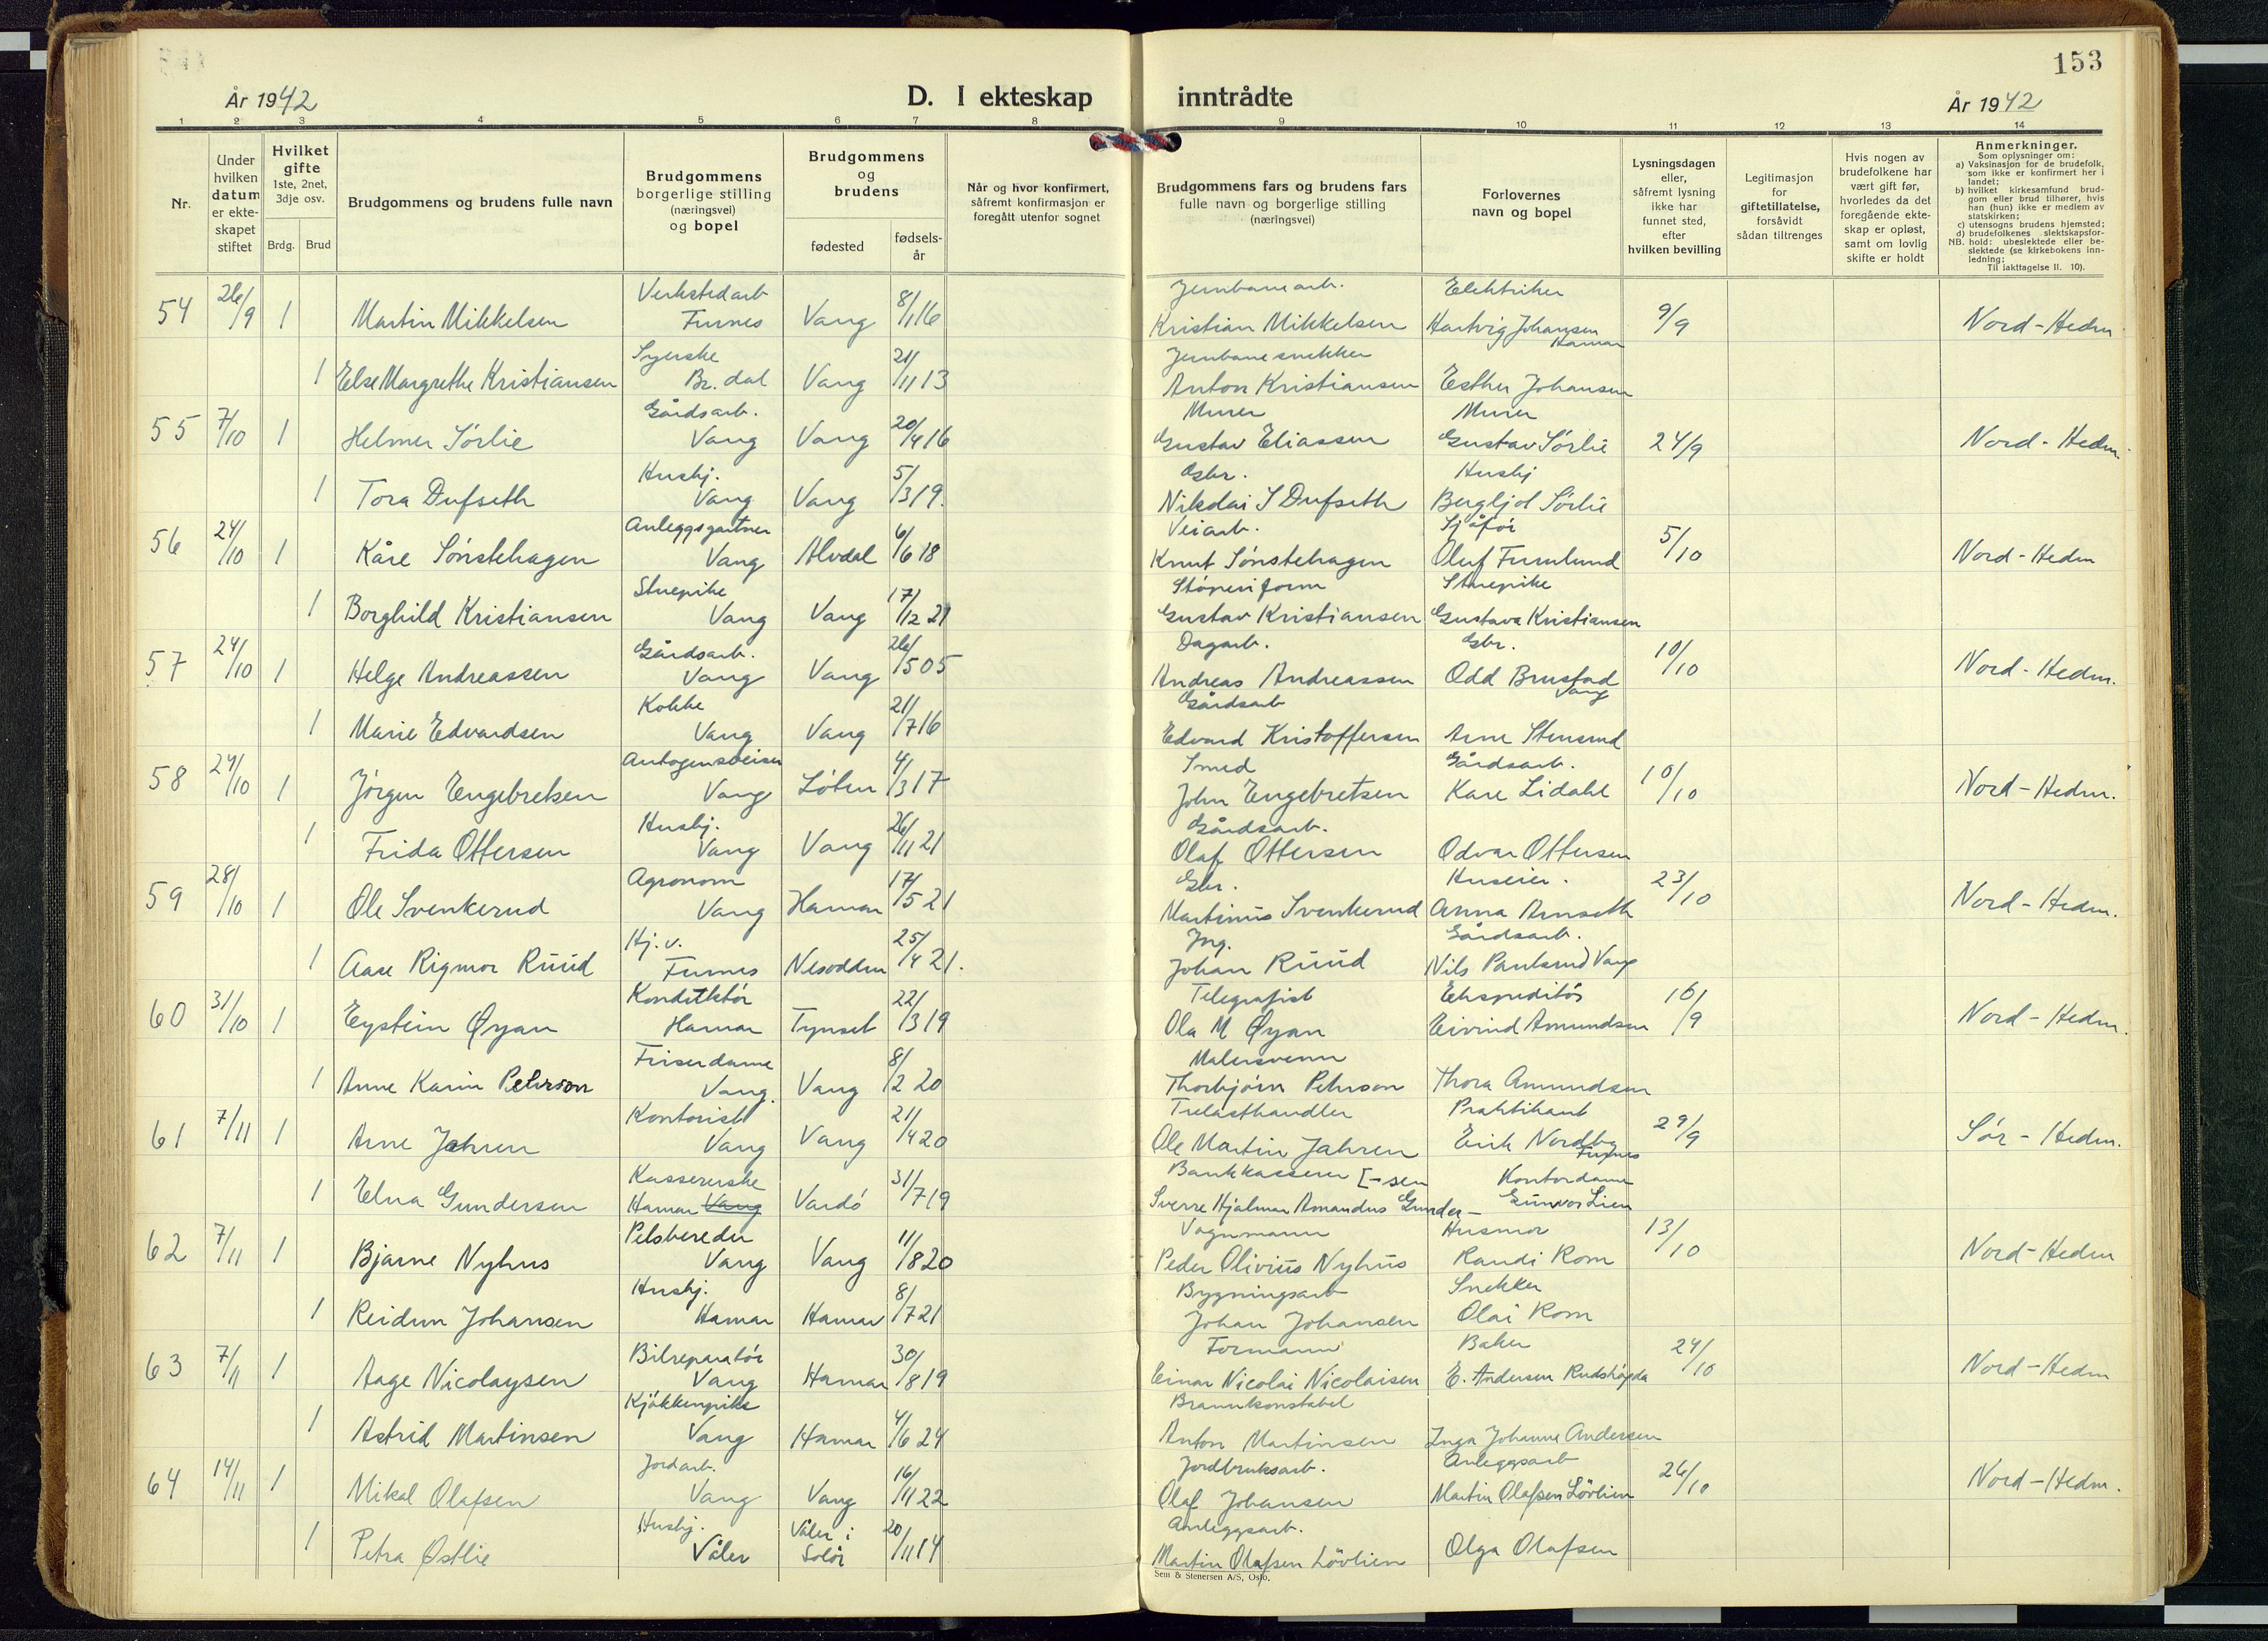 153
År 1942
D. I ekteskap inntrådte
År 1942
1 2 3 4 5 6 7 8 9 10 11 12 13 14
Nr.
Under hvilken datum er ekteskapet stiftet
Hvilket gifte 1ste, 2net, 3dje osv.
Brdg. Brud
Brudgommens og brudens fulle navn
Brudgommens borgerlige stilling (næringsvei) og bopel
Brudgommens og brudens
fødested
fødsels-år
Når og hvor konfirmert, såfremt konfirmasjon er foregått utenfor sognet
Brudgommens fars og brudens fars fulle navn og borgerlige stilling (næringsvei)
Forlovernes navn og bopel
Lysningsdagen eller, såfremt lysning ikke har funnet sted, efter hvilken bevilling
Legitimasjon for giftetillatelse, forsåvidt sådan tiltrenges
Hvis nogen av brudefolkene har vært gift før, hvorledes da det foregående ekteskap er opløst, samt om lovlig skifte er holdt
Anmerkninger.
Som oplysninger om:
a) Vaksinasjon for de brudefolk, som ikke er konfirmert her i landet;
b) hvilket kirkesamfund brudgom eller brud tilhører, hvis han (hun) ikke er medlem av statskirken;
c) utensogns brudens hjemsted;
d) brudefolkenes slektskapsforhold: ubeslektede eller beslektede (se kirkebokens innledning;
NB. Til iakttagelse II. 10).
54 26/9 1 Martin Mikkelsen Verkstedarb Furnes Vang 8/1 16 Jernbanearb. Kristian Mikkelsen Elektriker Hartvig Johansen Hamar 9/9 Nord-Hedm
1 Else Margrethe Kristiansen Syerske Br. dal Vang 21/11 13 Jernbanesnekker Anton Kristiansen Esther Johansen
55 7/10 1 Helmer Sørlie Gårdsarb. Vang Vang 20/4 16 Murer Gustav Eliassen Murer Gustav Sørlie 24/9 Nord-Hedm.
1 Tora Dufseth Hushj. Vang Vang 5/3 19. Gbr. Nikolai S Dufseth Hushj Bergljot Sørlie
56 24/10 1 Kåre Sønstehagen Anleggsgartner Vang Alvdal 6/6 18 Veiarb. Knut Sønstehagen Sjåfør Oluf Furulund 5/10 Nord-Hedm
1 Borghild Kristiansen Stuepike Vang Vang 17/12 21 Støperiform Gustav Kristiansen Stuepike Gustava Kristiansen
57 24/10 1 Helge Andreassen Gårdsarb. Vang Vang 26/5 05 Dagarb. Andreas Andreassen Gbr. Odd Brustad Vang 10/10 Nord-Hedm.
1 Marie Edvardsen Kokke Vang Vang 21/7 16 Gårdsarb Edvard Kristoffersen Arne Stensrud
58 24/10 1 Jørgen Engebretsen Autogensveiser Vang Løten 4/3 17 Smed John Engebretsen Gårdsarb. Kare Lidahl 10/10 Nord-Hedm.
1 Frida Ottersen Hushj. Vang Vang 26/11 21 Gårdsarb. Olaf Ottersen Odvar Ottersen
59 28/10 1 Ole Svenkerud Agronom Vang Hamar 17/5 21 Gbr. Martinus Svenkerud Huseier. Anna Arnseth 23/10 Nord-Hedm.
1 Aase Rigmor Ruud Hj. v. Furnes Nesodden 25/4 21. Ing. Johan Ruud Gårdsarb. Nils Paulsrud Vang
60 31/10 1 Eystein Øyan Konduktør Hamar Tynset 22/3 19 Telegrafist Ola M Øyan Ekspeditør Eivind Amundsen 16/9 Nord-Hedm.
1 Anne Karin Peterson Friserdame Vang. Vang 8/2 20 Malersvenn Thorbjørn Peterson Thora Amundsen
61 7/11 1 Arne Jahren Kontorist Vang Vang 21/4 20 Trelasthandler Ole Martin Jahren Praktikant Erik Nordby Furnes 29/9 Sør-Hedm.
1 Elna Gundersen Kassererske Hamar Vang Vardø 31/7 19 Bankkasserer [-sen Sverre Hjalmar Amandus Gunder- Kontordame Gunvor Lien
62 7/11 1 Bjarne Nyhus Pelsbereder Vang Vang 11/8 20 Vognmann Peder Olivius Nyhus Husmor Randi Rom 13/10 Nord-Hedm
1 Reidun Johansen Hushj. Hamar Hamar 8/7 21 Bygningsarb Johan Johansen Snekker Olai Rom
63 7/11 1 Aage Nicolaysen Bilreparatør Vang Hamar 30/8 19 Formann Einar Nicolai Nicolaisen Baker E. Andersen Rudshøgda 24/10 Nord-Hedm
1 Astrid Martinsen Kjøkkenpike Vang Hamar 4/6 24 Brannkonstabel Anton Martinsen Inga Johanne Andersen
64 14/11 1 Mikal Olafsen Jordarb. Vang Vang 16/11 22 Jordbruksarb. Olaf Johansen Anleggsarb Martin Olafsen Løvlien 26/10 Nord-Hedm.
1 Petra Østlie Hushj. Våler Våler i Solør 20/11 14 Anleggsarb. Martin Olafsen Løvlien Olga Olafsen
Sem & Stenersen A/S, Oslo.